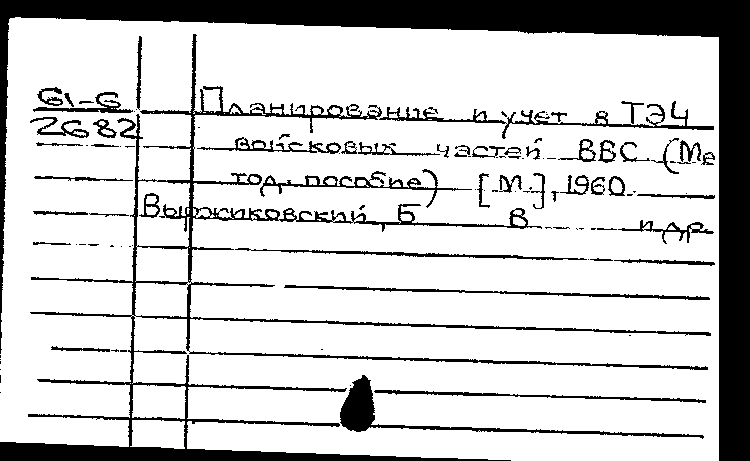 61-6
2682
Планирование и учет в ТЭЧ
войсковых частей ВВС (Ме
тод. пособие) [М.], 1960.
Выржиковский, Б В и др.